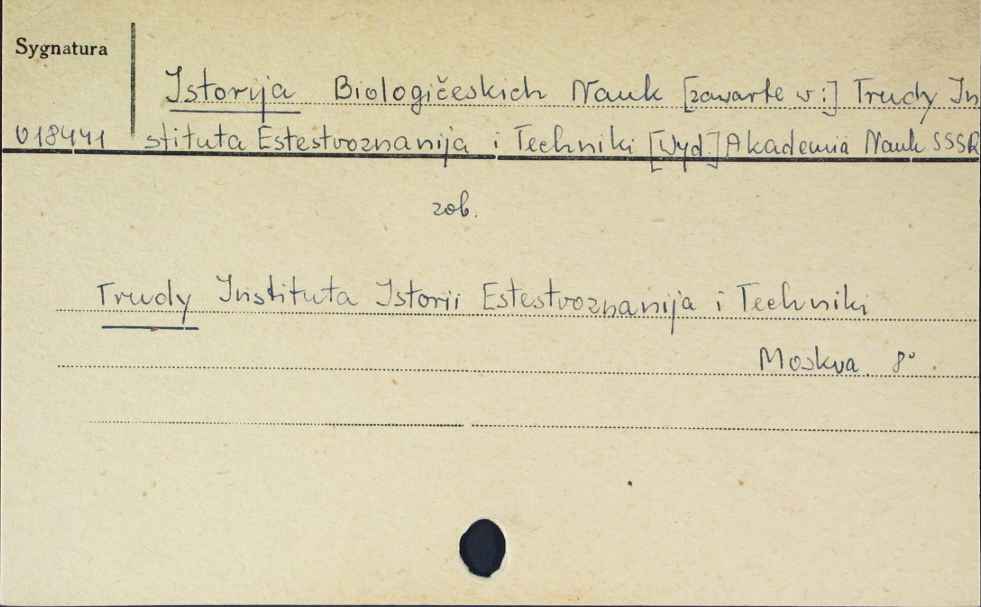 Sygnatura
Istorija Biologičeskich Nauk [zawarte w:] Trudy In
018441 stituta Estestvoznanija i Techniki [Wyd.] Akademia Nauk SSSR
zob.
Trudy Instituta Istorii Estestvoznanija i Techniki
Moskva 8°.